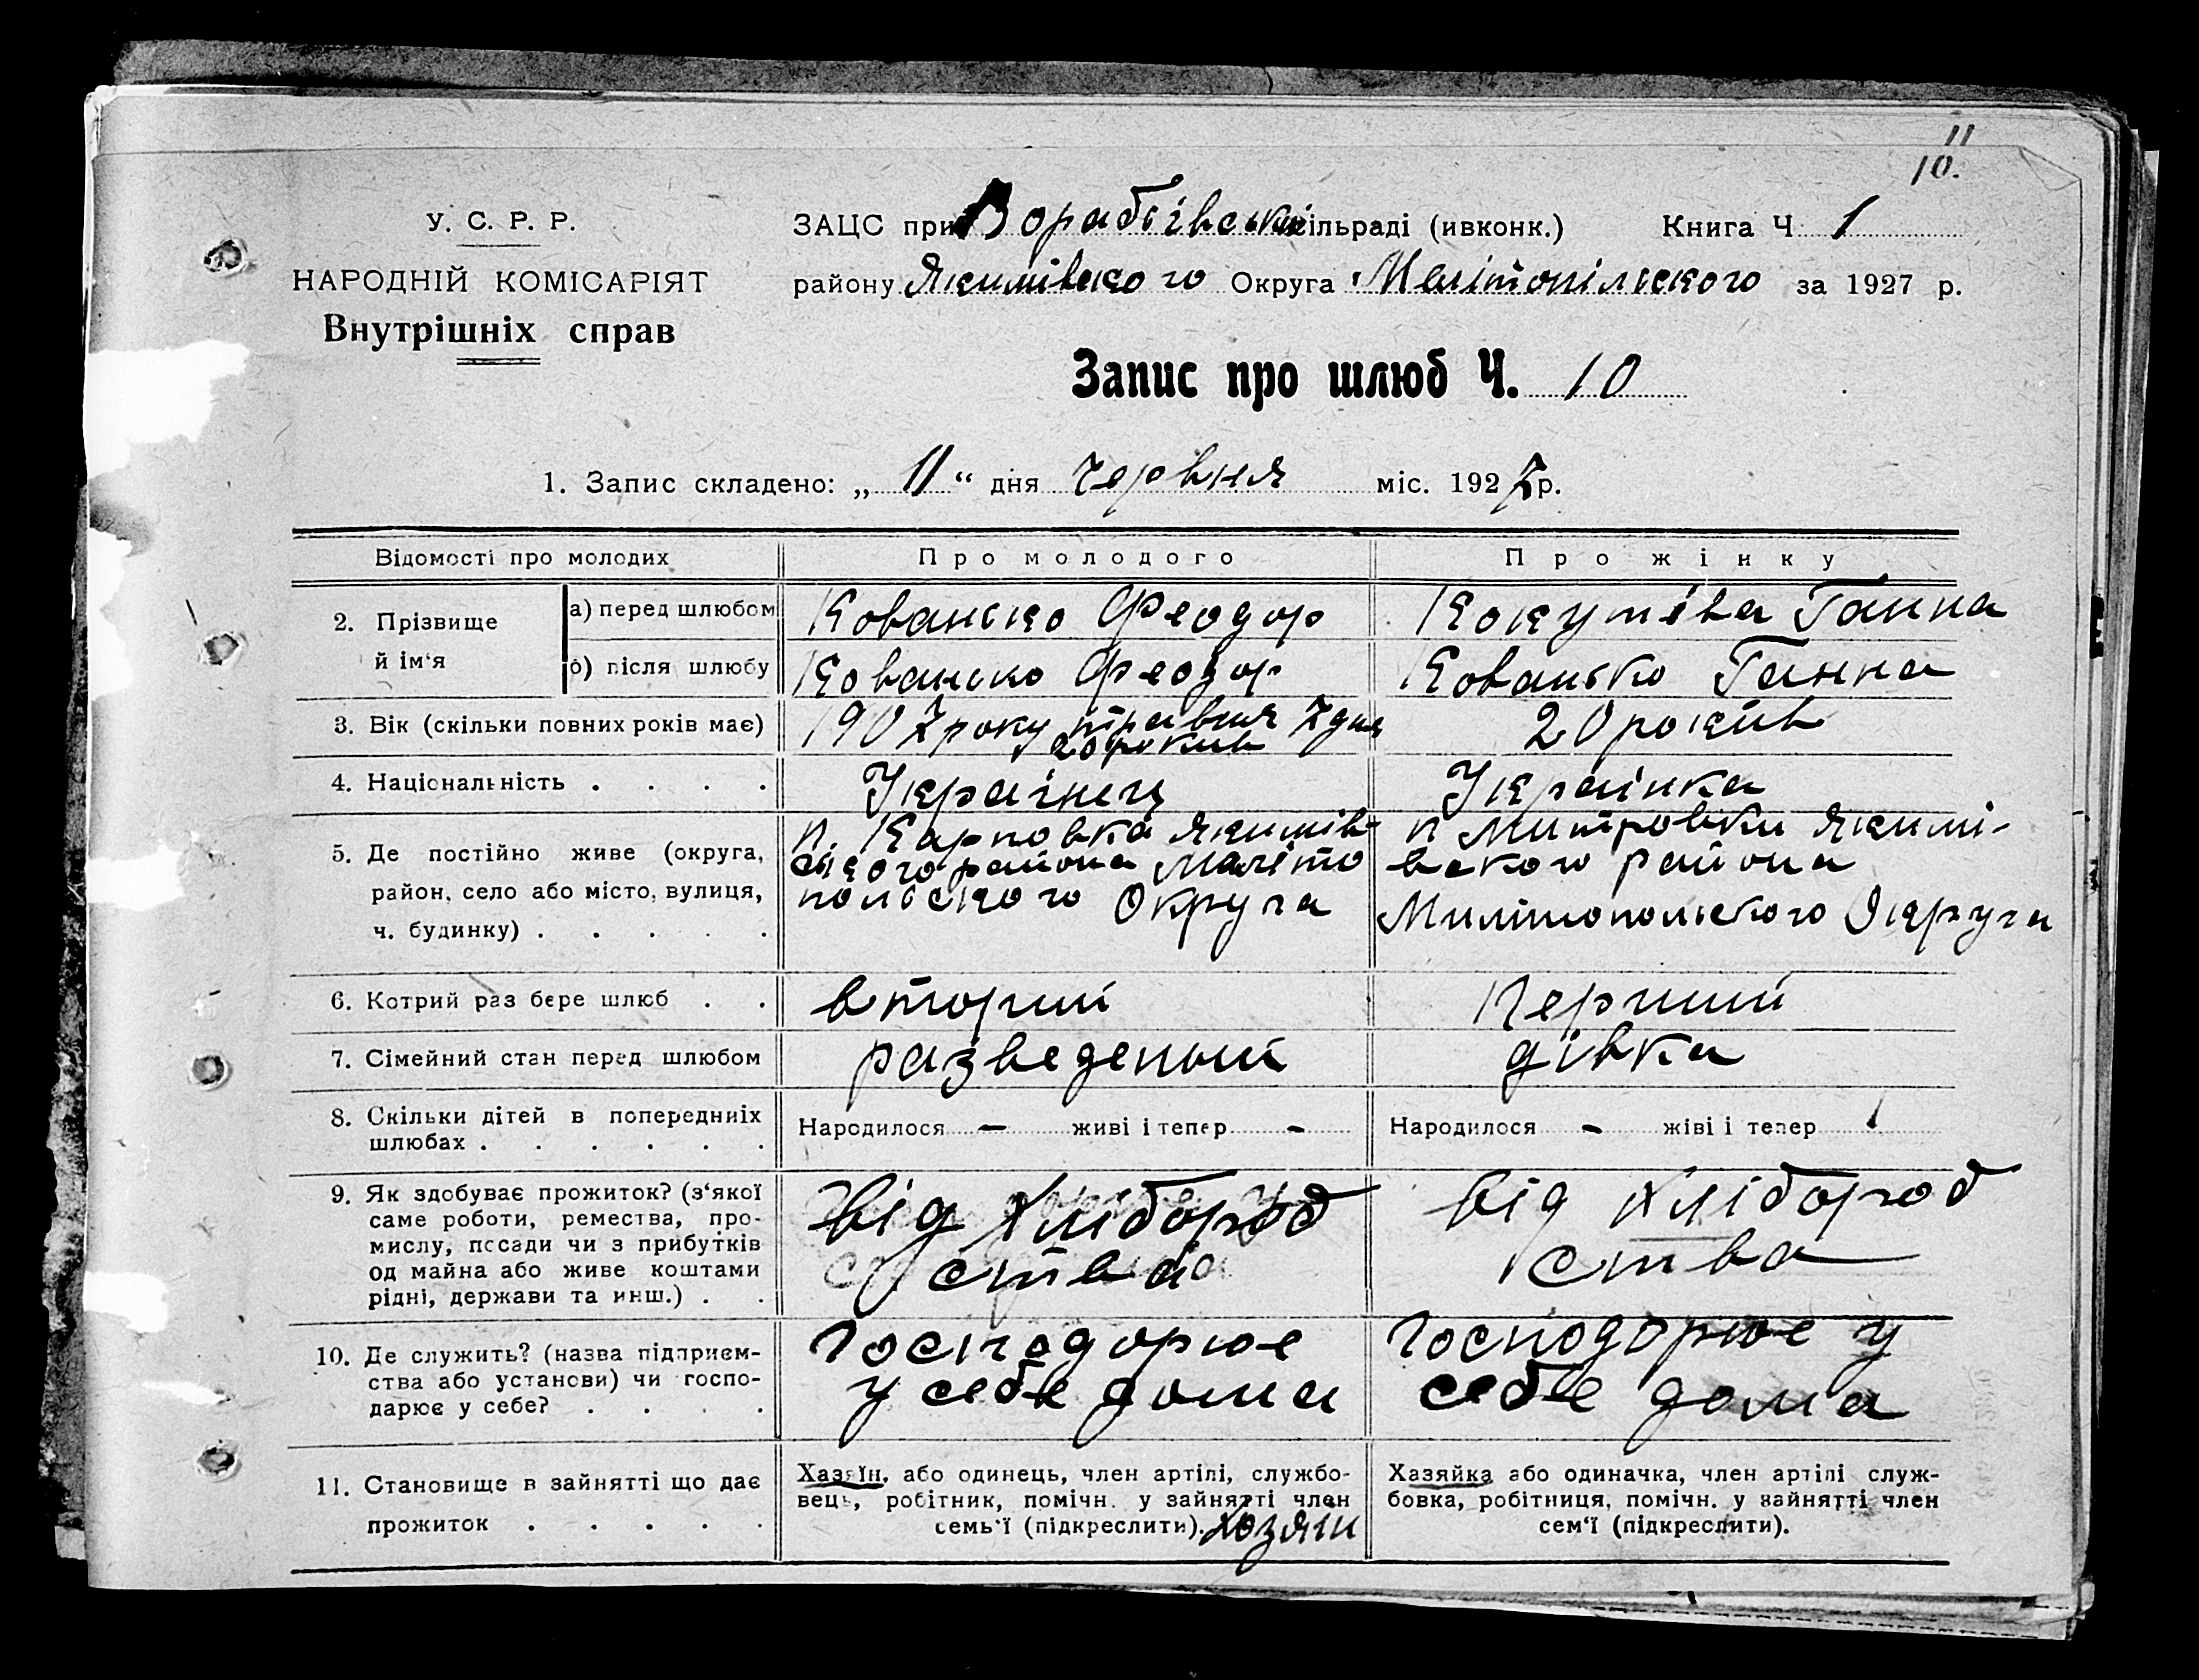 11
10.
У. С. Р. Р.
НАРОДНІЙ КОМІСАРІЯТ
Внутрішніх справ
ЗАЦС приВорабьівській сільраді (ивконк.) Книга Ч 1
району Якимівского Округа Мелітопільского за 1927 р.
Запис про шлюб Ч. 10
1. Запис складено: „ 11 “ дня Червня міс. 1927 р.
Відомості про молодих Про молодого Про жінку
2. Прізвище й ім‘я
а) перед шлюбом Кованько Феодор
б) після шлюбу Кованько Феодор Кованько Ганна
3. Вік (скільки повних років має) 1907 року травня 7 дня 20 років 20 років
4. Національність . . . . Українец Українка
5. Де постійно живе (округа,
район, село або місто, вулиця,
ч. будинку) . . . . .
п. Карповка Якимів-
ского района Меліто
польского Округа
п Митровки Якимі-
вского района
Милітопольского Округа
6. Котрий раз бере шлюб . . вторий Перший
7. Сімейний стан перед шлюбом разведеный дівка
8. Скільки дітей в попередниіх
шлюбах . . . . . .
Народилося — живі і тепер -
Народилося - жіві і тепер
9. Як здобуває прожиток? (з‘якої
саме роботи, ремества, про-
мислу, посади чи з прибутків
од майна або живе коштами
рідні, держави та инш.) . .
від хлібороб
ства
від хлібороб
ства
10. Де служить? (назва підприєм-
ства або установи) чи госпо-
дарює у себе? . . . .
Господорює
у себе дома
Господорює у
себе дома
11. Становище в зайнятті що дає
прожиток . . . . .
Хазяїн, або одинець, член артілі, службо-
вець, робітник, помічн. у зайнятті член
семь‘ї (підкреслити). Хозяін
Хазяйка або одиначка, член артілі служ-
бовка, робітниця, помічн. у зайнятті член
сем‘ї (підкреслити).